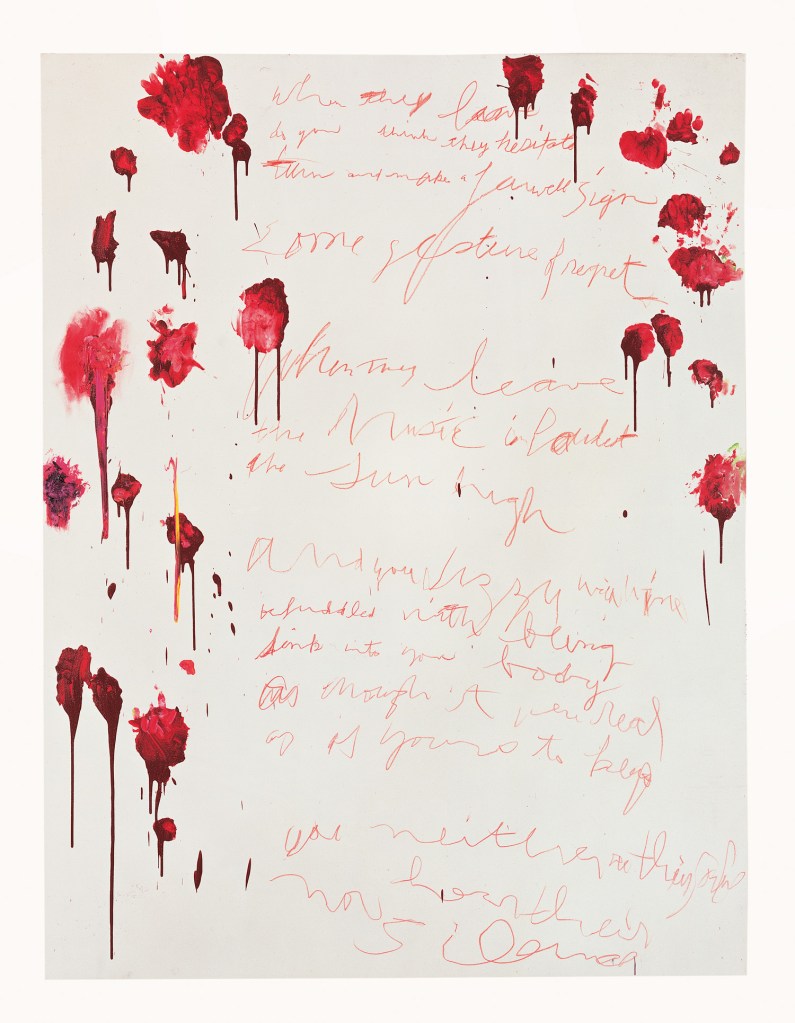 When they leave
do you think they hesitate
turn and make a farewell sign
Some gesture of regret
When they leave
the Music is loudest
the sun high
and you dizzy with wine
befuddled with being
sink into your body
as though it were real
as if yours to keep
you neither see their
nor hear their
Silence